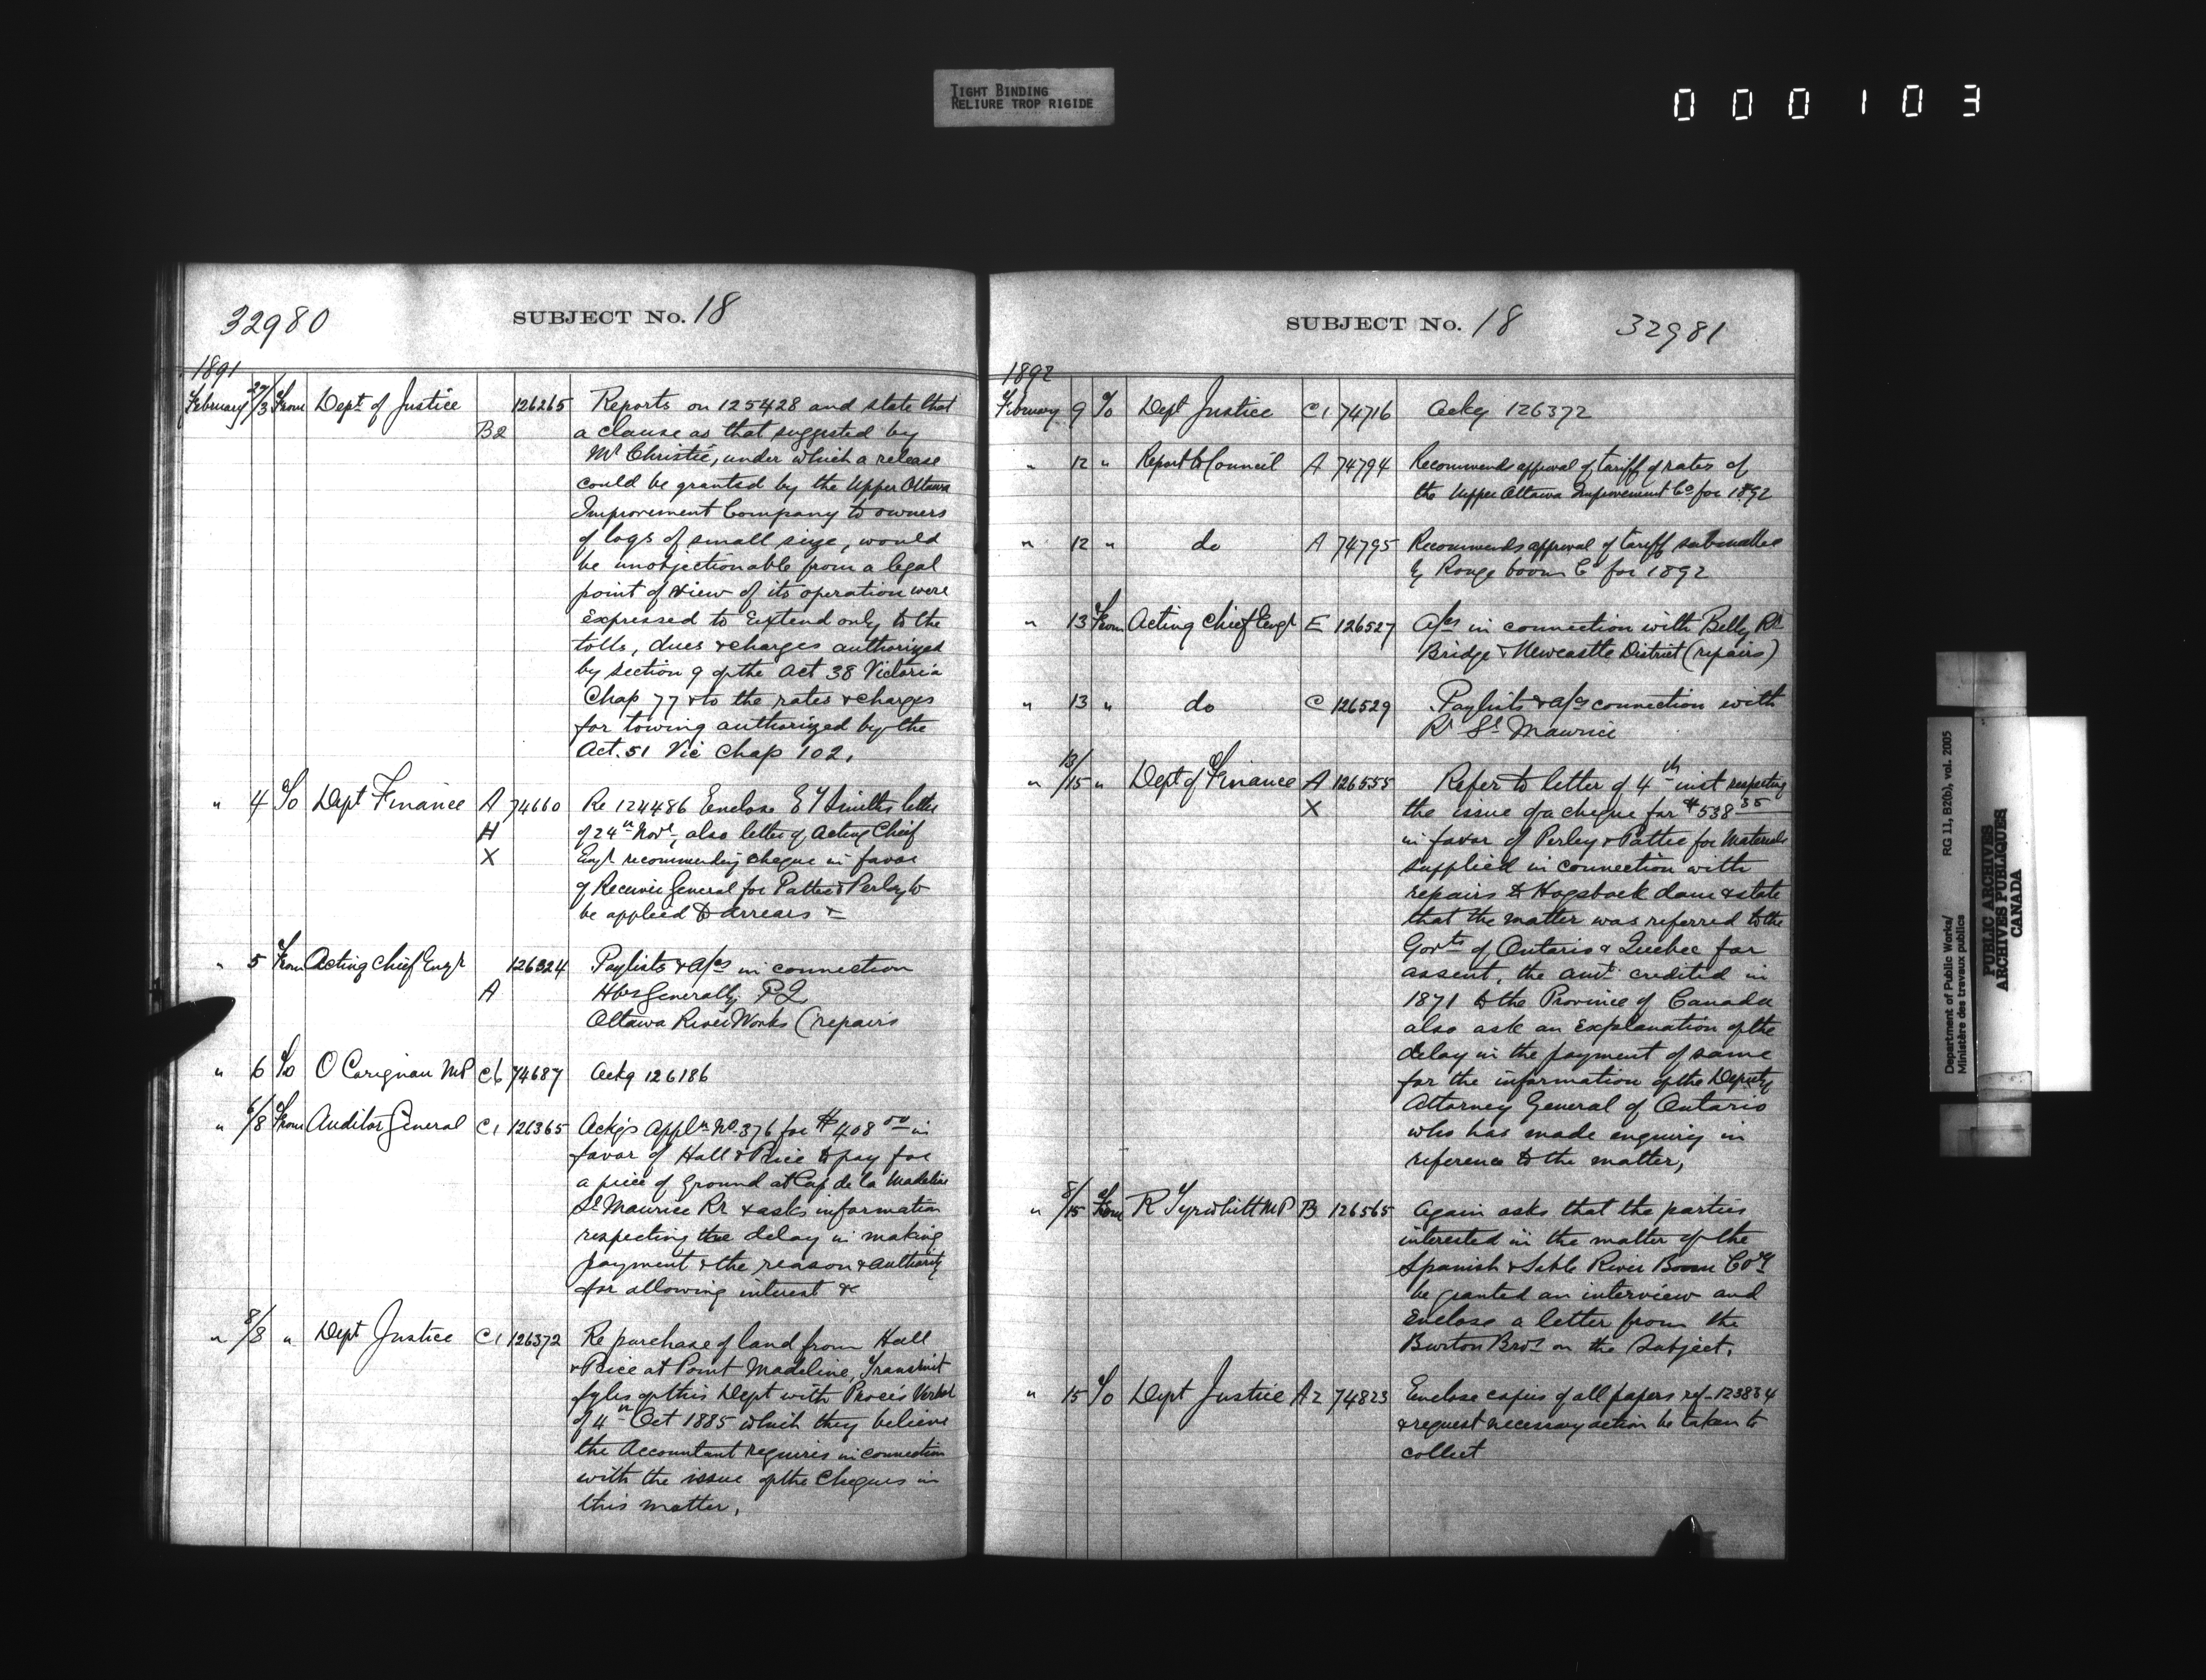 TIGHT BINDING
RELIURE TROP RIGIDE
000103
32980
SUBJECT No. 18
1891
February 29/3 From Dept of Justice 126265 Reports on 125428 and state that
B2 a clause as that suggested by
Mr Christie, under which a release
could be granted by the Upper Ottawa
Improvement Company to owners
of logs of small size, would
be unobjectionable from a legal
point of view if its operation were
expressed to Extend only to the
tolls, dues & charges authorized
by section 9 of the Act 38 Victoria
Chap 77 & to the rates & charges
for towing authorized by the
Act. 51 Vic Chap 102.
" 4 To Dept Finance A 74660 Re 124486 Enclose E Y Smiths letter
H of 24th Novr, also letter of Acting Chief
X Engr recommending cheque in favor
of Receiver General for Pattee & Perley to
be applied to arrears &
" 5 From Acting Chief Engr 126324 Paylists & a/cs in connection
A Hbrs Generally P Q
Ottawa River Works (repairs
" 6 To O Carignan MP C6 74687 Ackg 126186
" 6/8 From Auditor General C1 126365 Ackgs Appln No. 376 for $408 00 in
favor of Hall & Price to pay for
a piece of ground at Cap de la Madeline
St Maurice Rr & asks information
respecting the delay in making
payment & the reason & authority
for allowing interest &
" 8/8 " Dept Justice C1 126372 Re purchase of land from Hall
& Price at Point Madeline, Transmit
fyles of this Dept with Procés Verbal
of 4th Oct 1885 which they believe
the Accountant requires in connection
with the issue of the Cheques in
this matter.
SUBJECT No. 18
32981
1892
February 9 To Dept Justice C1 74716 Ackg 126372
" 12 " Report to Council A 74794 Recommends approval of tariff of rates of
the Upper Ottawa Improvement Co for 1892
" 12 " do A 74795 Recommends approval of tariff submitted
by Rouge boom Co for 1892
" 13 From Acting Chief Engr E 126527 a/cs in connection with Belly Rr
Bridge & Newcastle District (repairs)
" 13 " do C 126529 Paylists & a/cs connection with
Rr St Maurice
" 13/15 " Dept of Finance A 126555 Refer to letter of 4th inst respecting
X the issue of a cheque for $538 35
in favor of Perley & Pattee for Materials
supplied in connection with
repairs to Hogsback dam & state
that the matter was referred to the
Govts of Ontario & Quebec for
assent, the amt credited in
1871 to the Province of Canada
also ask an Explanation of the
delay in the payment of same
for the information of the Deputy
Attorney General of Ontario
who has made enquiry in
reference to the matter,
" 8/15 From R Tyrwhitt MP B 126565 Again asks that the parties
interested in the matter of the
Spanish & Sable River Boom Coy
be granted an interview and
Enclose a letter from the
Burton Bros on the Subject.
" 15 To Dept Justice A2 74823 Enclose copies of all papers ref 123834
& request necessary action be taken to
collect
Department of Public Works/ RG 11, B2(b), vol. 2005
Ministère des travaux publics
PUBLIC ARCHIVES
ARCHIVES PUBLIQUES
CANADA